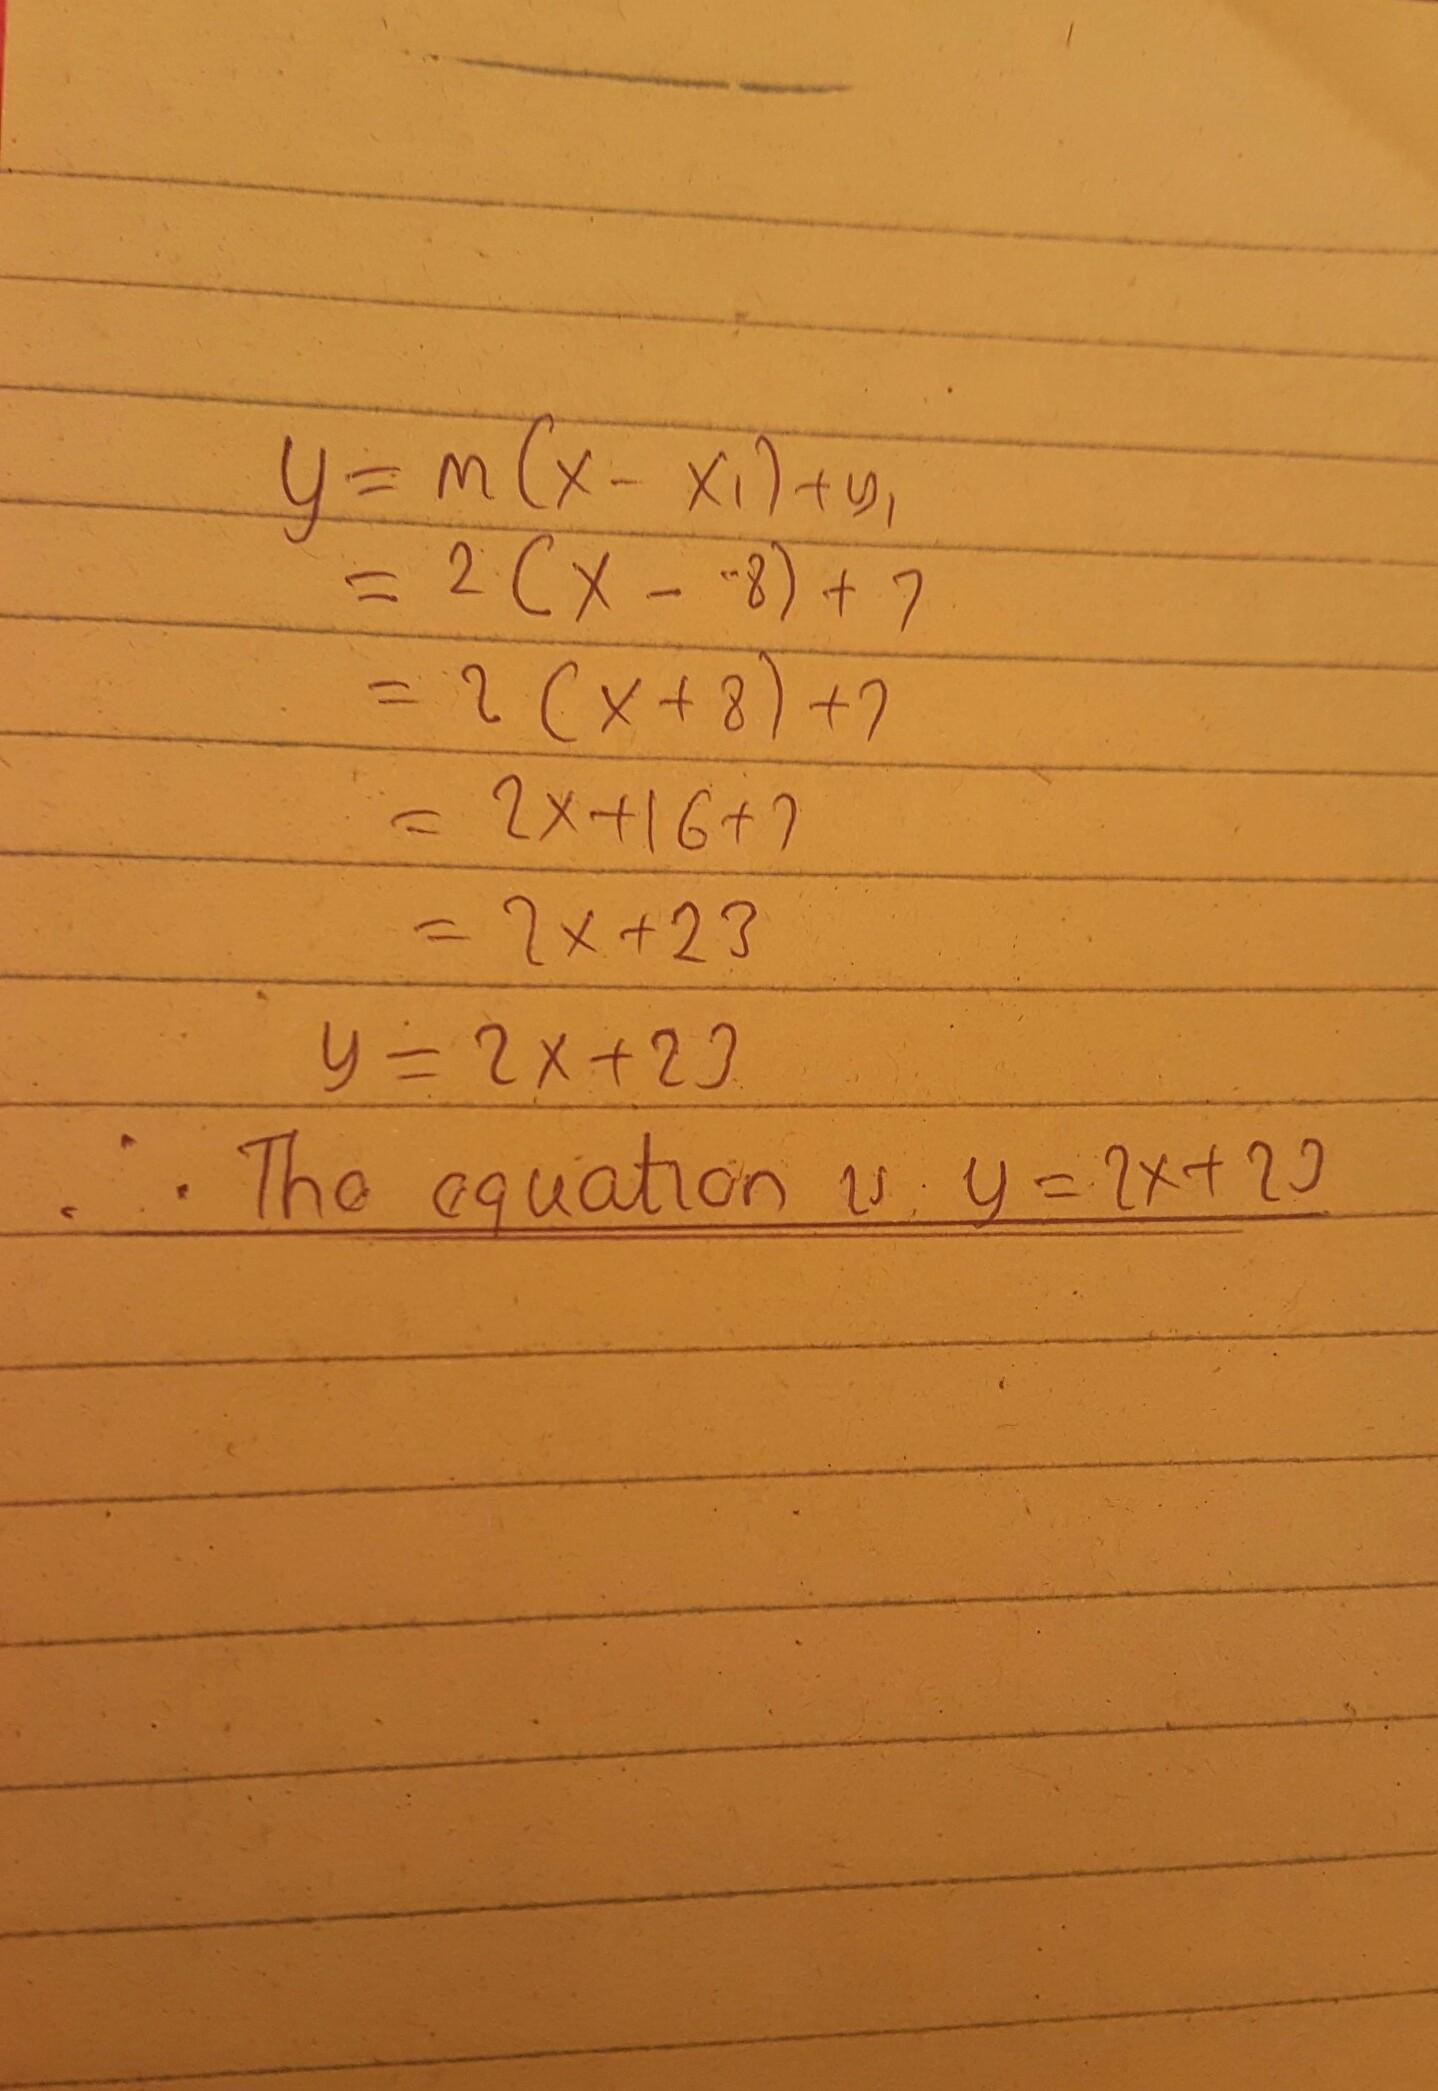 y = m(x - x₁) + y₁
= 2(x - -8) + 7
= 2(x + 8) + 7
= 2x + 16 + 7
= 2x + 23
y = 2x + 23
∴ The equation is y = 2x + 23